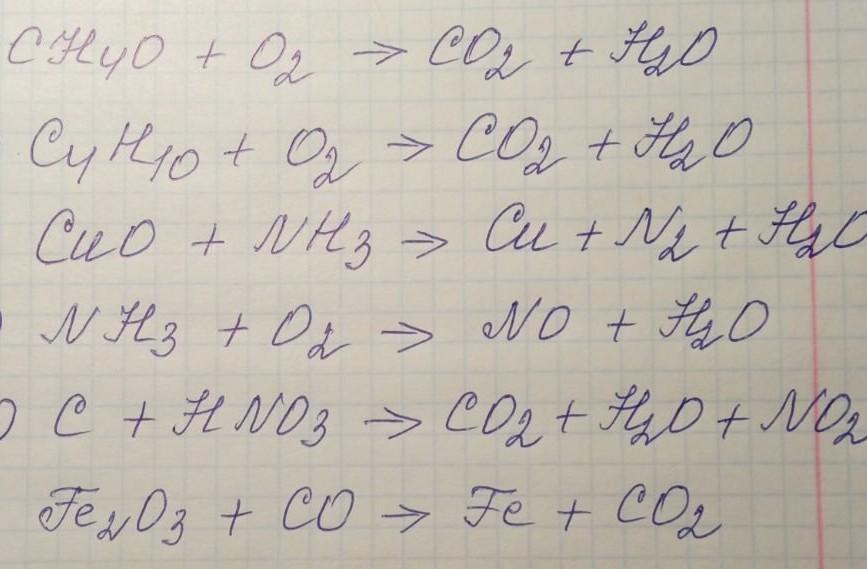 CH₄O + O₂ → CO₂ + H₂O
C₄H₁₀ + O₂ → CO₂ + H₂O
CuO + NH₃ → Cu + N₂ + H₂O
) NH₃ + O₂ → NO + H₂O
) C + HNO₃ → CO₂ + H₂O + NO₂
Fe₂O₃ + CO → Fe + CO₂